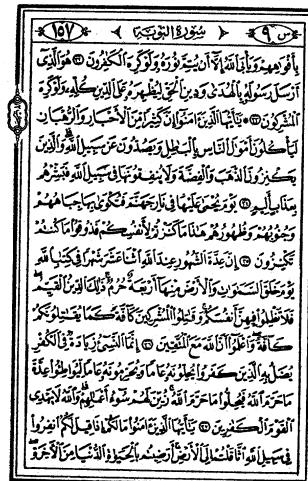 س ٩ سُورَةُ التَّوْبَةِ ١٥٧
بِأَفْوَٰهِهِمْ وَيَأْبَى ٱللَّهُ إِلَّآ أَن يُتِمَّ نُورَهُۥ وَلَوْ كَرِهَ ٱلْكَٰفِرُونَ ٣٢ هُوَ ٱلَّذِىٓ
أَرْسَلَ رَسُولَهُۥ بِٱلْهُدَىٰ وَدِينِ ٱلْحَقِّ لِيُظْهِرَهُۥ عَلَى ٱلدِّينِ كُلِّهِۦ وَلَوْ كَرِهَ
ٱلْمُشْرِكُونَ ٣٣ يَٰٓأَيُّهَا ٱلَّذِينَ ءَامَنُوٓا۟ إِنَّ كَثِيرًا مِّنَ ٱلْأَحْبَارِ وَٱلرُّهْبَانِ
لَيَأْكُلُونَ أَمْوَٰلَ ٱلنَّاسِ بِٱلْبَٰطِلِ وَيَصُدُّونَ عَن سَبِيلِ ٱللَّهِ وَٱلَّذِينَ
يَكْنِزُونَ ٱلذَّهَبَ وَٱلْفِضَّةَ وَلَا يُنفِقُونَهَا فِى سَبِيلِ ٱللَّهِ فَبَشِّرْهُم
بِعَذَابٍ أَلِيمٍ ٣٤ يَوْمَ يُحْمَىٰ عَلَيْهَا فِى نَارِ جَهَنَّمَ فَتُكْوَىٰ بِهَا جِبَاهُهُمْ
وَجُنُوبُهُمْ وَظُهُورُهُمْ هَٰذَا مَا كَنَزْتُمْ لِأَنفُسِكُمْ فَذُوقُوا۟ مَا كُنتُمْ
تَكْنِزُونَ ٣٥ إِنَّ عِدَّةَ ٱلشُّهُورِ عِندَ ٱللَّهِ ٱثْنَا عَشَرَ شَهْرًا فِى كِتَٰبِ ٱللَّهِ
يَوْمَ خَلَقَ ٱلسَّمَٰوَٰتِ وَٱلْأَرْضَ مِنْهَآ أَرْبَعَةٌ حُرُمٌ ذَٰلِكَ ٱلدِّينُ ٱلْقَيِّمُ
فَلَا تَظْلِمُوا۟ فِيهِنَّ أَنفُسَكُمْ وَقَٰتِلُوا۟ ٱلْمُشْرِكِينَ كَآفَّةً كَمَا يُقَٰتِلُونَكُمْ
كَآفَّةً وَٱعْلَمُوٓا۟ أَنَّ ٱللَّهَ مَعَ ٱلْمُتَّقِينَ ٣٦ إِنَّمَا ٱلنَّسِىٓءُ زِيَادَةٌ فِى ٱلْكُفْرِ
يُضَلُّ بِهِ ٱلَّذِينَ كَفَرُوا۟ يُحِلُّونَهُۥ عَامًا وَيُحَرِّمُونَهُۥ عَامًا لِّيُوَاطِـُٔوا۟ عِدَّةَ
مَا حَرَّمَ ٱللَّهُ فَيُحِلُّوا۟ مَا حَرَّمَ ٱللَّهُ زُيِّنَ لَهُمْ سُوٓءُ أَعْمَٰلِهِمْ وَٱللَّهُ لَا يَهْدِى
ٱلْقَوْمَ ٱلْكَٰفِرِينَ ٣٧ يَٰٓأَيُّهَا ٱلَّذِينَ ءَامَنُوا۟ مَا لَكُمْ إِذَا قِيلَ لَكُمُ ٱنفِرُوا۟
فِى سَبِيلِ ٱللَّهِ ٱثَّاقَلْتُمْ إِلَى ٱلْأَرْضِ أَرَضِيتُم بِٱلْحَيَوٰةِ ٱلدُّنْيَا مِنَ ٱلْءَاخِرَةِ